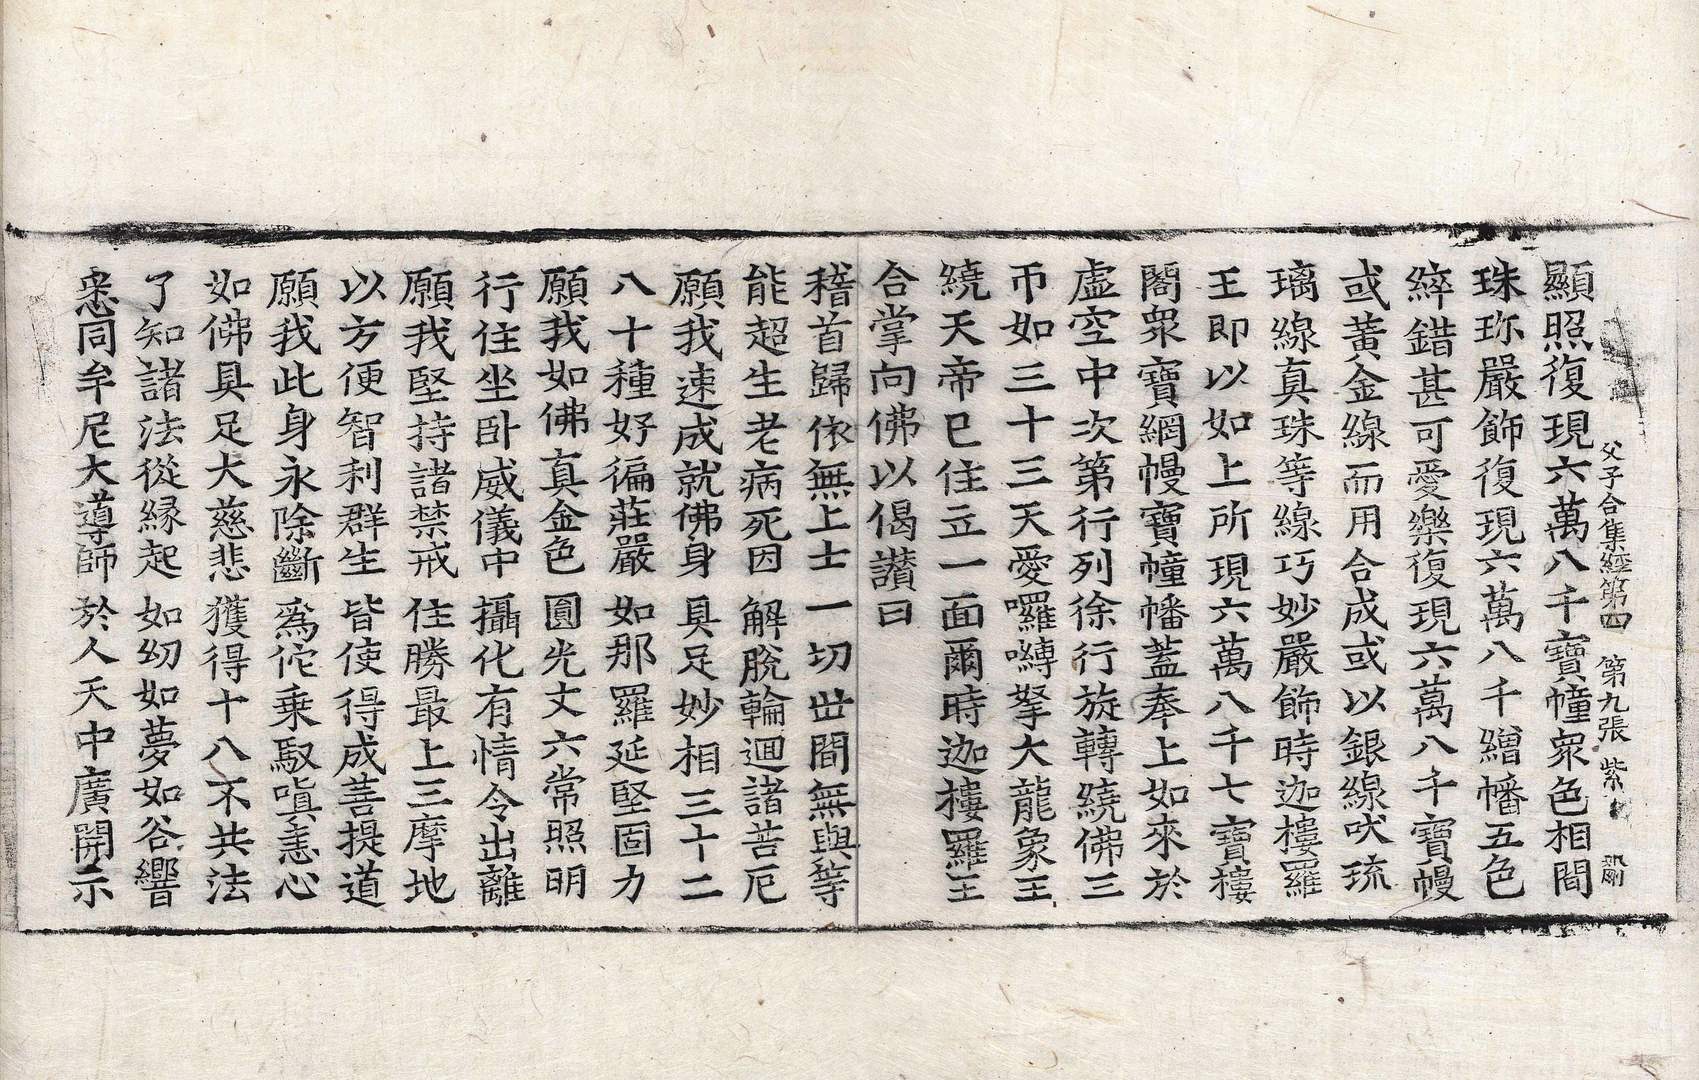 父子合集經第四 第九張 紫
顯照復現六萬八千寶幢衆色相間
珠珎嚴飾復現六萬八千繒幡五色
綷錯甚可愛樂復現六萬八千寶幔
或黃金線而用合成或以銀線吠琉
璃線真珠等線巧妙嚴飾時迦樓羅
王即以如上所現六萬八千七寶樓
閣衆寶網幔寶幢幡蓋奉上如來於
虛空中次第行列徐行旋轉繞佛三
帀如三十三天愛囉嚩拏大龍象王
繞天帝已住立一面爾時迦樓羅王
合掌向佛以偈讃曰
稽首歸依無上士 一切世間無與等
能超生老病死因 解脫輪迴諸苦厄
願我速成就佛身 具足妙相三十二
八十種好徧莊嚴 如那羅延堅固力
願我如佛真金色 圓光丈六常照明
行住坐卧威儀中 攝化有情令出離
願我堅持諸禁戒 住勝最上三摩地
以方便智利群生 皆使得成菩提道
願我此身永除斷 爲佗乗馭嗔恚心
如佛具足大慈悲 獲得十八不共法
了知諸法從縁起 如幻如夢如谷響
悉同牟尼大導師 於人天中廣開示